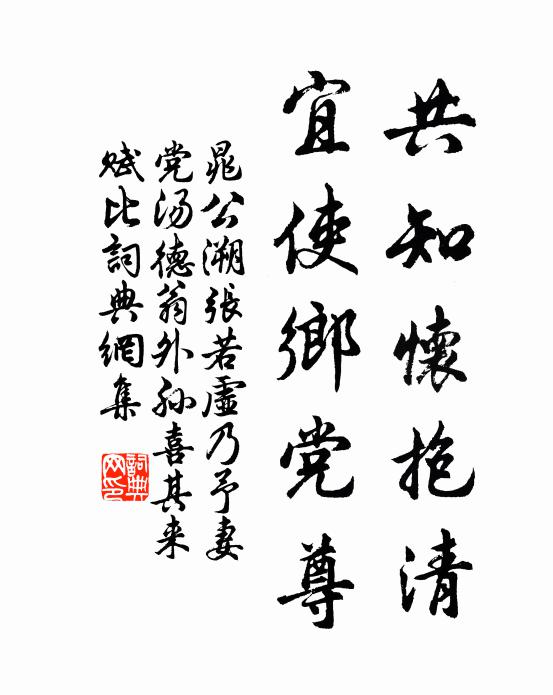 共知懷抱清
宜使鄉党尊
晁公溯張若虛乃予妻
党汤德翁外孙喜其来
赋比詞典網集
詞典
网印